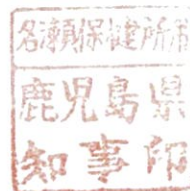 名瀬保健所用
鹿児島県
知事印